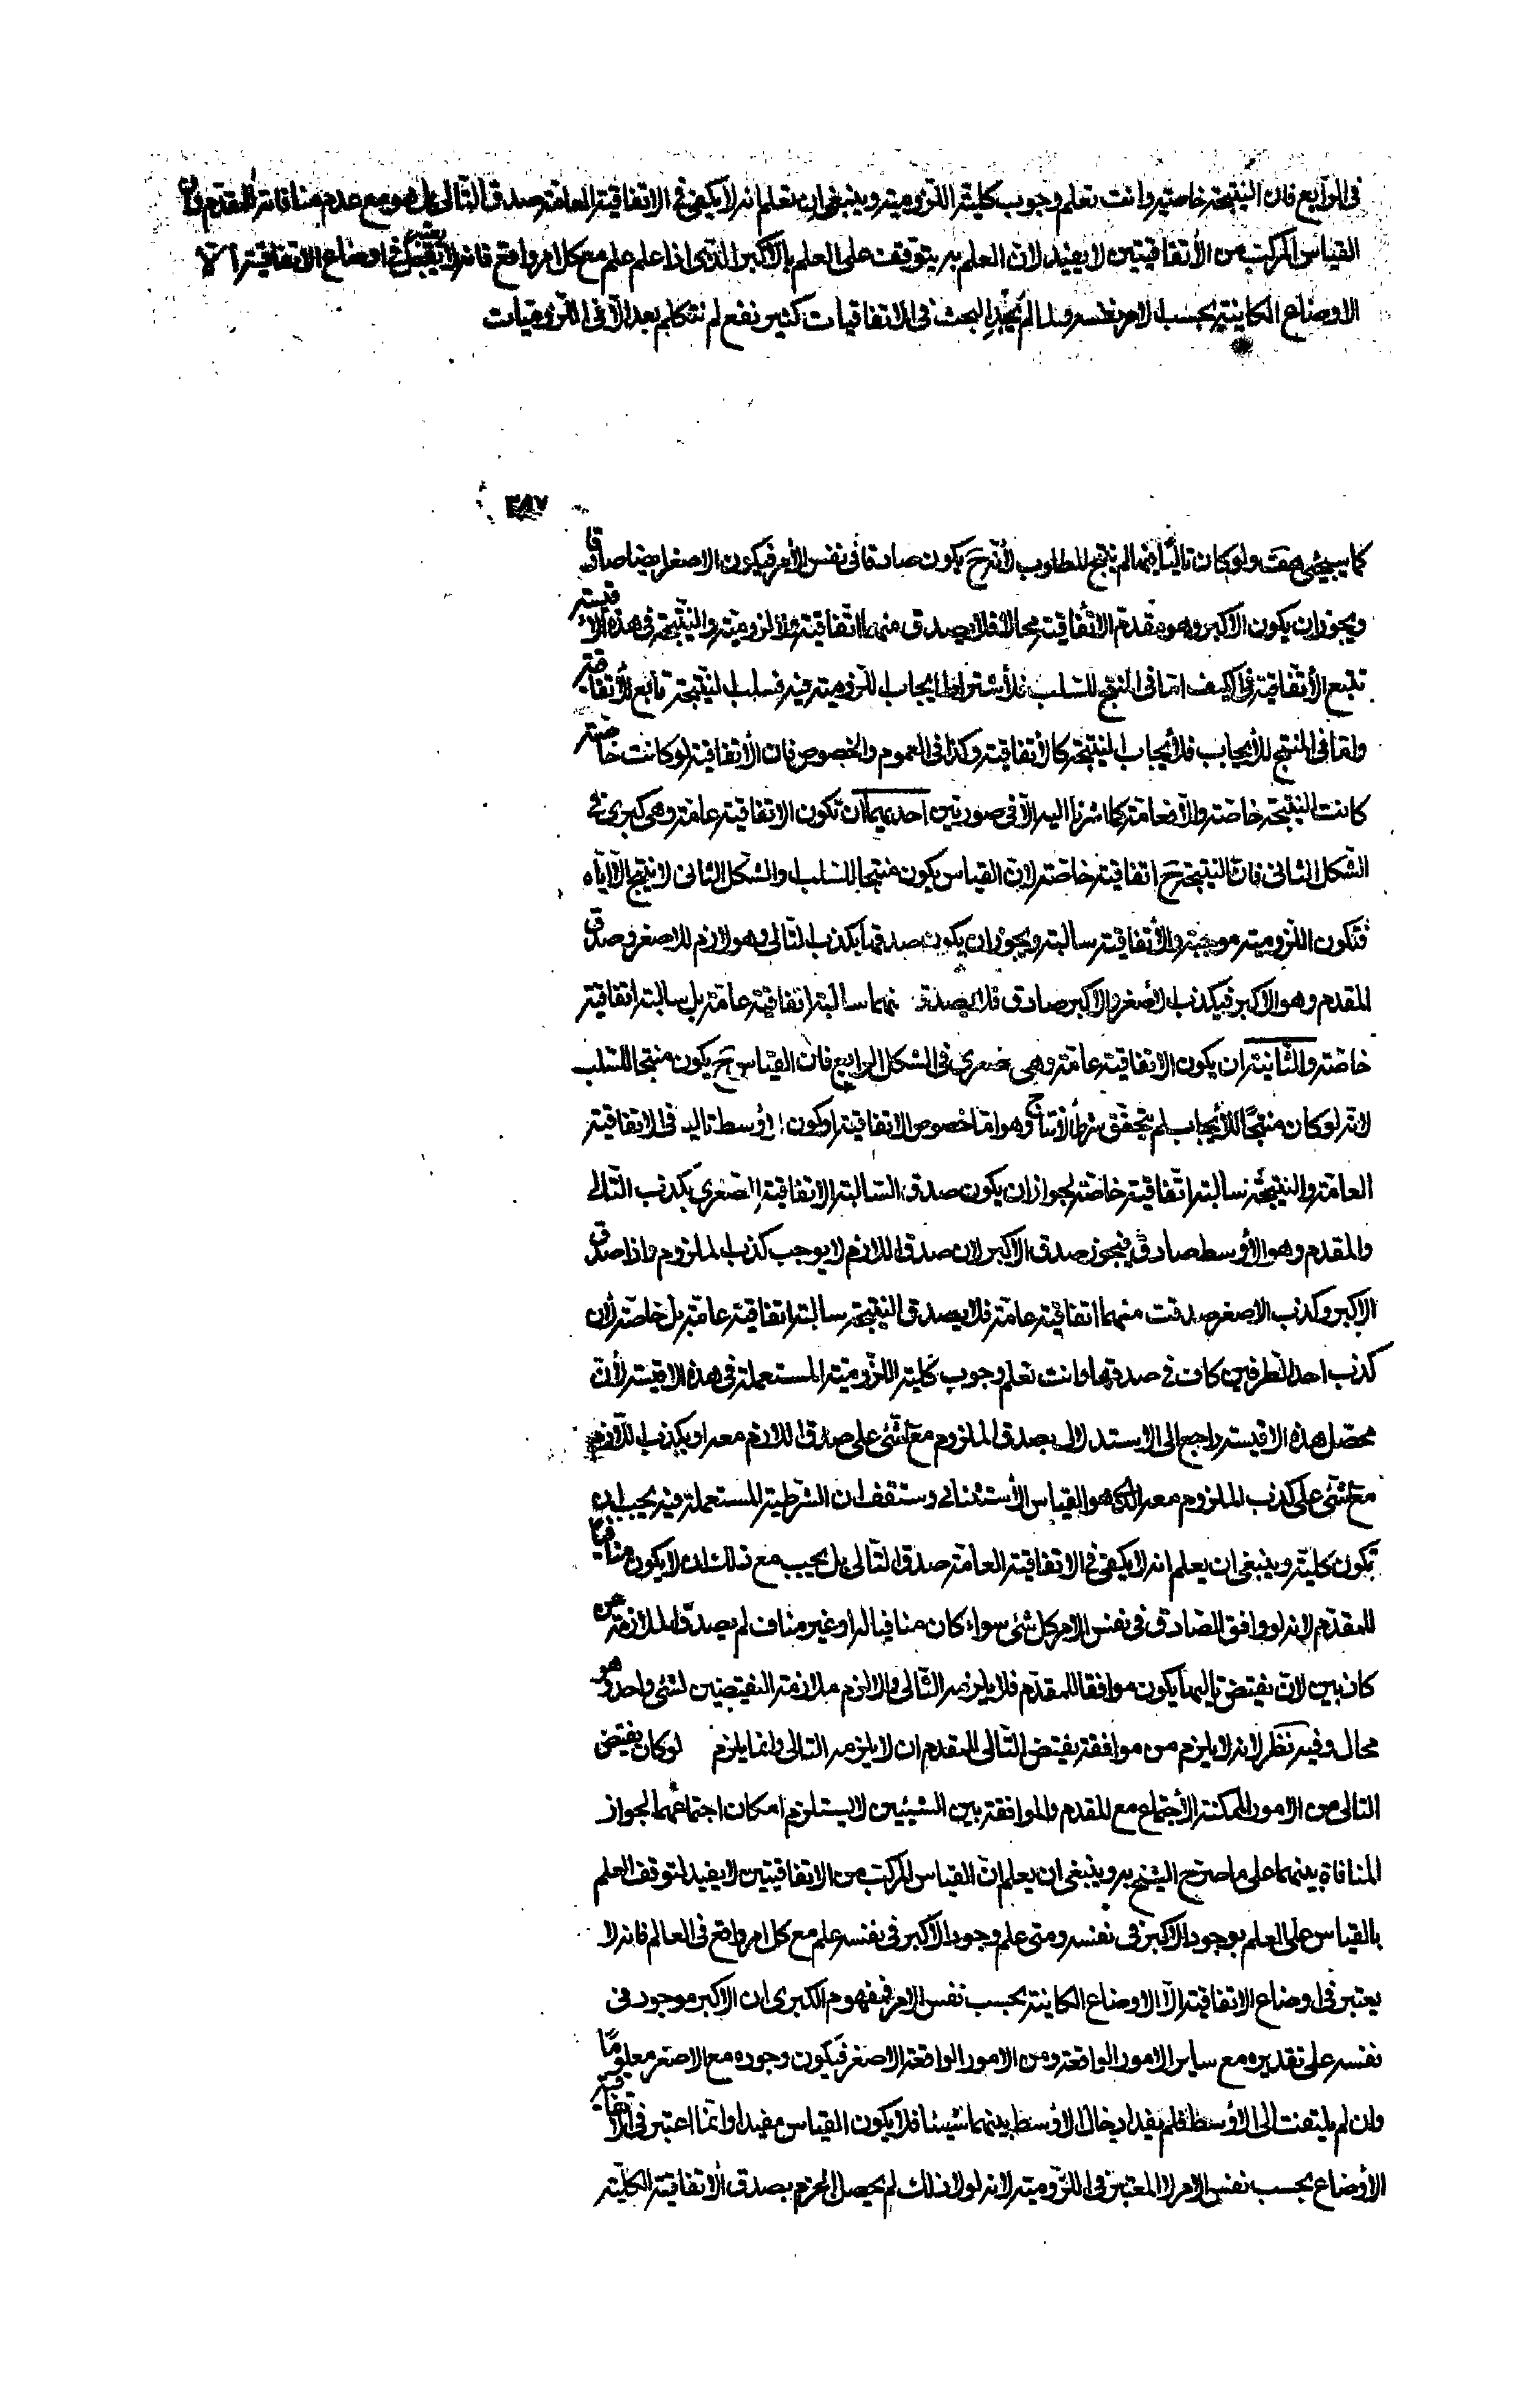 فى الرابع فان النتيجة خاصة وانت تعلم وجوب كلية اللزومية وينبغى ان تعلم انه لا يكفى فى الاتفاقية العامة صدق التالى بل هو مع عدم منافاته للمقدم وان
القياس المركب من الاتفاقيتين لا يفيد لان العلم به يتوقف على العلم بالاكبر الذى اذا علم علم مع كل امر واقع فانه لا يعتبر فى اوضاع الاتفاقية الا
الاوضاع الكاينة بحسب الامر نفسه ولما لم يجد البحث فى الاتفاقيات كثير نفع لم نتكلم بعد الا فى اللزوميات
٢٨٧
كما سيجئ هف ولو كان تاليا فيها لم ينتج المطلوب لانه ح يكون صادقا فى نفس الأمر فيكون الاصغر ايضا صادقا
ويجوز ان يكون الاكبر وهو مقدم الاتفاقية محالا فلا يصدق منهما اتفاقية ولا لزومية والنتيجة فى هذه الاقيسة
تتبع الأتفاقية فى الكيف اما فى المنتج للسلب فلأشتراط ايجاب اللزومية فيه فسلب النتيجة تابع للأتفاقية
واما فى المنتج للأيجاب فلأيجاب النتيجة كالأتفاقية وكذا فى العموم والخصوص فان الأتفاقية لو كانت خاصة
كانت النتيجة خاصة والا فعامة كما اشرنا اليه الا فى صورتين احديهما ان تكون الاتفاقية عامة وهى كبرى فى
الشكل الثانى فان النتيجة ح اتفاقية خاصة لان القياس يكون منتجا للسلب والشكل الثانى لا ينتج الا اياه
فتكون اللزومية موجبة والأتفاقية سالبة ويجوز ان يكون صدقها بكذب التالى وهو لازم للاصغر وصدق
المقدم وهو الاكبر فيكذب الأصغر والاكبر صادق فلا يصدق منهما سالبة اتفاقية عامة بل سالبة اتفاقية
خاصة والثانية ان يكون الاتفاقية عامة وهى صغرى فى الشكل الرابع فان القياس ح يكون منتجا للسلب
لانه لو كان منتجًا للأيجاب لم يتحقق شرط الأنتاج وهو اما خصوص الاتفاقية او كون الاوسط تاليه فى الاتفاقية
العامة والنتيجة سالبة اتفاقية خاصة لجواز ان يكون صدق السالبة الاتفاقية الصغرى بكذب التالى
والمقدم وهو الأوسط صادق فيجوز صدق الاكبر لان صدق اللازم لا يوجب كذب الملزوم واذا صدق
الاكبر وكذب الاصغر صدقت منهما اتفاقية عامة فلا يصدق النتيجة سالبة اتفاقية عامة بل خاصة لأن
كذب احد الطرفين كاف فى صدقها وانت تعلم وجوب كلية اللزومية المستعملة فى هذه الاقيسة لأن
محصل هذه الاقيسة راجع الى الاستدلال بصدق الملزوم مع شئ على صدق اللازم معه او بكذب اللازم
مع شئ على كذب الملزوم معه الذى هو القياس الأستثنائى وستقف ان الشرطية المستعملة فيه يجب ان
تكون كلية وينبغى ان يعلم انه لا يكفى فى الاتفاقية العامة صدق التالى بل يجب مع ذلك ان لا يكون منافيا
للمقدم لانه لو وافق الصادق فى نفس الامر كل شئ سواء كان منافيا له او غير مناف لم يصدق الملازمة من
كاذبين لان نقيض تاليها يكون موافقا للمقدم فلا يلزمه التالى والا لزم ملازمة النقيضين لشئ واحد وهو
محال وفيه نظر لانه لا يلزم من موافقة نقيض التالى للمقدم ان لا يلزمه التالى وانما يلزم لو كان نقيض
التالى من الامور الممكنة الأجتماع مع المقدم والموافقة بين الشيئين لا يستلزم امكان اجتماعهما لجواز
المنافاة بينهما على ما صرح الشيخ به وينبغى ان يعلم ان القياس المركب من الاتفاقيتين لا يفيد لتوقف العلم
بالقياس على العلم بوجود الاكبر فى نفسه ومتى علم وجود الاكبر فى نفسه علم مع كل امر واقع فى العالم فانه لا
يعتبر فى اوضاع الاتفاقية الا الاوضاع الكاينة بحسب نفس الامر فمفهوم الكبرى ان الاكبر موجود فى
نفسه على تقديره مع ساير الامور الواقعة ومن الامور الواقعة الاصغر فيكون وجوده مع الاصغر معلومًا
وان لم يلتفت الى الاوسط فلم يفد ادخال الاوسط بينهما شيئا فلا يكون القياس مفيدا وانما اعتبر فى الاتفاقية
الأوضاع بحسب نفس الامر لا المعتبرة فى اللزومية لانه لولا ذلك لم يحصل الجزم بصدق الأتفاقية الكلية